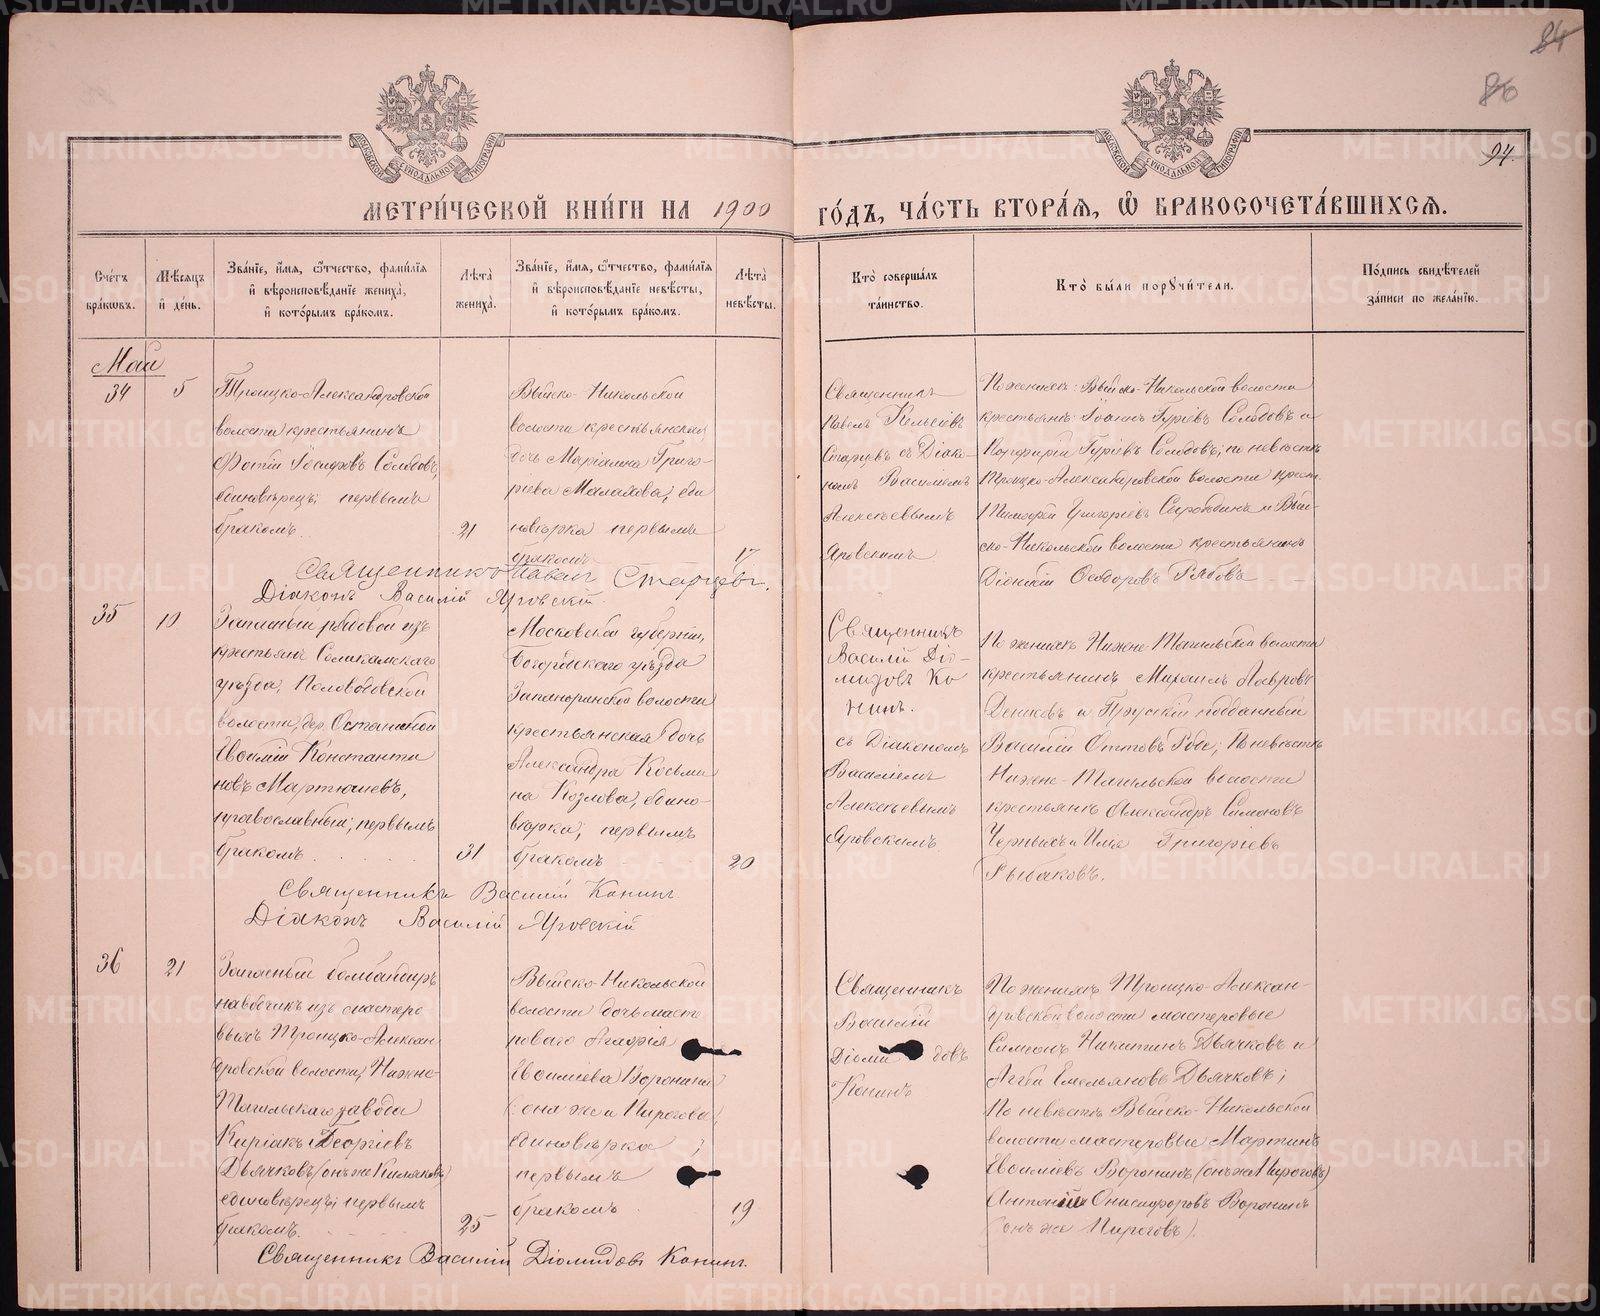 84
86
94.
МЕТРИ́ЧЕСКОЙ КНИ́ГИ НА 1900 ГО́ДЪ, ЧА́СТЬ ВТОРА́Я, Ѡ БРАКОСОЧЕТА́ВШИХСЯ.
Сче́тъ бра́кѡвъ.
Мѣ́сяцъ и҆ де́нь.
Зва́нїе, и҆́мя, ѻ҆́тчество, фами́лїя
и҆ вѣроисповѣ́данїе жениха̀,
и҆ кото́рымъ бра́комъ.
Лѣ́та̀ жениха̀.
Зва́нїе, и҆́мя, ѻ҆́тчество, фами́лїя
и҆ вѣроисповѣ́данїе невѣ́сты,
и҆ кото́рымъ бра́комъ.
Лѣ́та̀ невѣ́сты.
Кто̀ соверша́лъ та́инство.
Кто̀ бы́ли порꙋчи́тели.
По́дпись свидѣ́телей за́писи по жела́нїю.
Май
34
5
Троицко-Александровской
волости крестьянинъ
Фотій Іосифовъ Солобовъ,
единовѣрецъ; первымъ
бракомъ.
21
Выйско-Никольской
волости крестьянская
дочь Маріамна Григо-
рьева Малахова, еди
новѣрка первымъ
бракомъ
17
Священникъ
Павелъ Кельсіевъ
Старцевъ съ Діако-
номъ Василіемъ
Алексѣевымъ
Яровскимъ
По женихѣ: Выйско-Никольской волости
крестьяне: Іоаннъ Гурьевъ Солобовъ и
Порфирій Гурьевъ Солобовъ; по невѣстѣ
Троицко-Александровской волости крест.
Тимофей Григорьевъ и Вый-
ско-Никольской волости крестьянинъ
Діонисій Ѳеодоровъ Рябовъ
Священникъ Павелъ Старцевъ.
Діаконъ Василій Яровскій.
35
10
Запасный рядовой изъ
крестьянъ Соликамскаго
уѣзда, Половодовской
волости, дер. Останиной
Евѳимій Константи
новъ Мартюшевъ,
православный; первымъ
бракомъ
31
Московской губерніи,
Богородскаго уѣзда
Запоноринской волости
крестьянская дочь
Александра Косьми
на Козлова, едино-
вѣрка; первымъ
бракомъ
20
Священникъ
Василій Діо-
мидовъ Ко
нинъ.
съ Діакономъ
Василіемъ
Алексѣевымъ
Яровскимъ.
По женихѣ Нижне-Тагильской волости
крестьянинъ Михаилъ Лавровъ
Деньковъ и Прусскій подданный
Василій Оттовъ Роде; По невѣстѣ
Нижне-Тагильской волости
крестьяне Александръ Симоновъ
Черныхъ и Илія Григорьевъ
Рыбаковъ.
Священникъ Василій Конинъ
Діаконъ Василій Яровскій
36
21
Запасный бомбардиръ
наводчикъ изъ мастеро
выхъ Троицко-Алексан
дровской волости, Нижне-
Тагильскаго завода
Киріакъ Георгіевъ
Дьячковъ (онъ же Кильяковъ)
единовѣрецъ; первымъ
бракомъ.
25
Выйско-Никольской
волости дочь масте
роваго Агафія
Евѳиміева Воронина
(она же и Пирогова)
единовѣрка;
первымъ
бракомъ
19
Священникъ
Василій
Діомидовъ
Конинъ
По женихѣ Троицко-Алексан-
дровской волости мастеровые
Симеонъ Никитинъ Дьячковъ и
Емельяновъ Дьячковъ;
По невѣстѣ Выйско-Никольской
волости мастеровые Мартинъ
Евѳиміевъ Воронинъ (онъ же Пироговъ)
Антоній Онисифоровъ Воронинъ
(онъ же Пироговъ).
Священникъ Василій Діомидовъ Конинъ.
METRIKI.GASO-URAL.RU